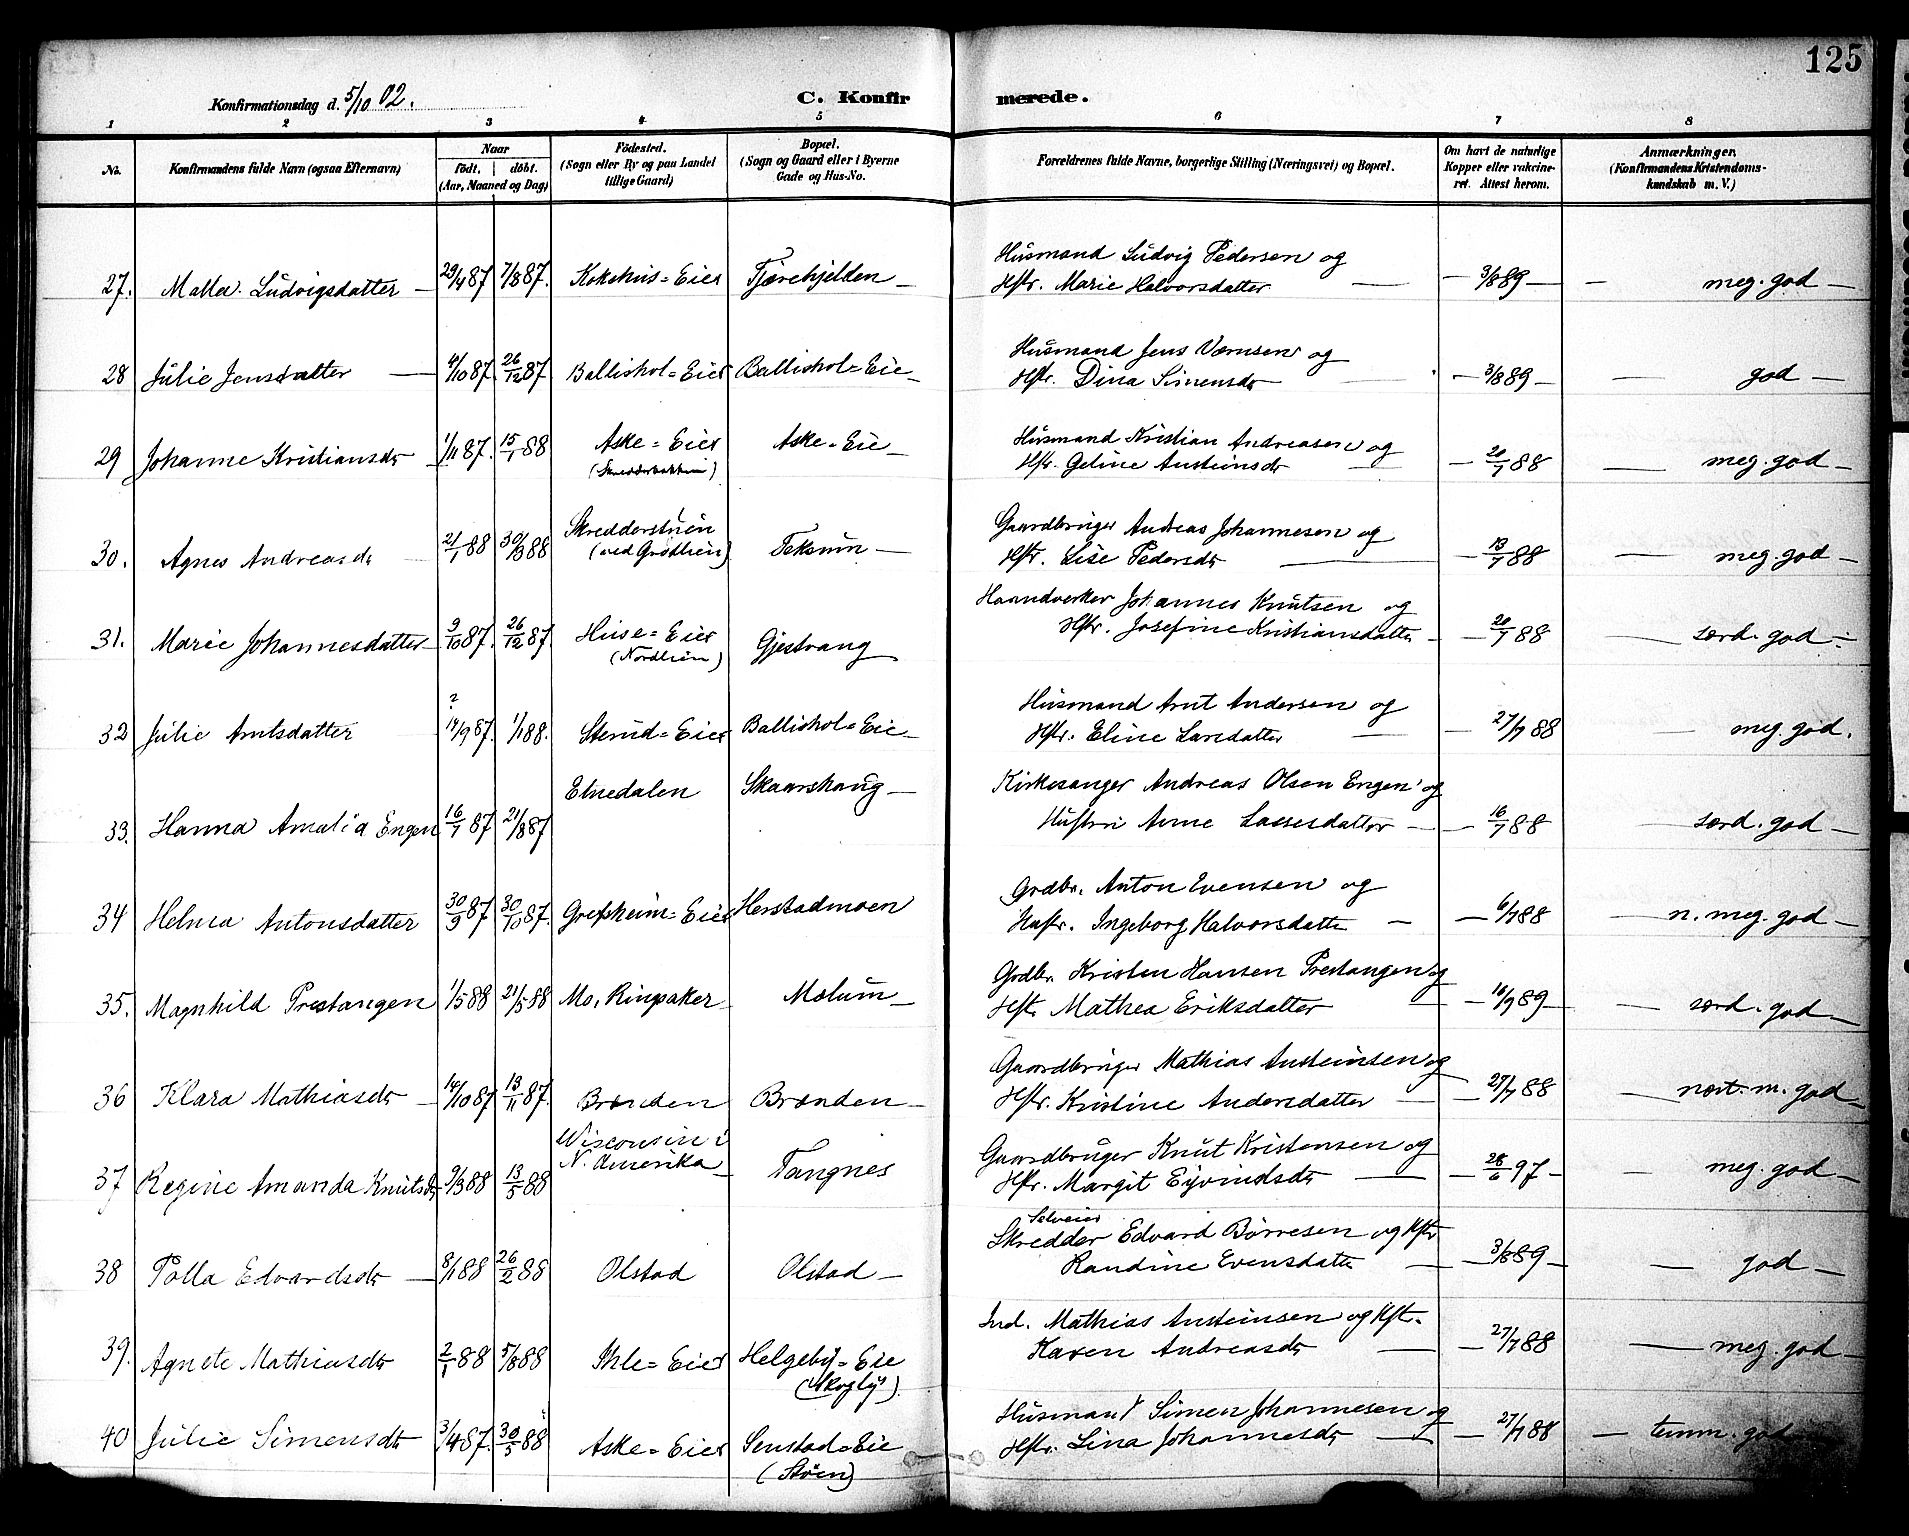 125
Konfirmationsdag d. 5/10 02.
C. Konfirmerede.
1 2 3 4 5 6 7 8
No. Konfirmandens fulde Navn (ogsaa Efternavn) Naar født, døbt. (Aar, Maaned og Dag) Fødested. (Sogn eller By og paa Landet tillige Gaard) Bopæl. (Sogn og Gaard eller i Byerne Gade og Hus-No. Forældrenes fulde Navne, borgerlige Stilling (Næringsvei) og Bopæl. Om havt de naturlige Kopper eller vakcineret. Attest herom. Anmærkninger. (Konfirmandens Kristendomskundskab m. V.)
Husmand Ludvig Pedersen og
27. Ludvigsdatter 29/4 87 7/8 87. Kokehus=Eier Tjærekjelden Hstr. Marie Halvorsdatter 3/8 89 meg. god
Husmand Jens og
28 Julie Jensdatter 4/10 87 26/12 87 Ballishol=Eier Ballishol=Eie Hstr. Dina Simensdr 3/8 89 god
Husmand Kristian Andreasen og
29 Johanne Kristiansdr 1/11 87. 15/1 88 Aske=Eier Aske=Eie Hstr. Geline Austeinsdr 20/7 88 meg. god
Gaardbruger Andreas Johannesen og
30. Agnes Andreasdr 21/1 88 30/3 88 Skredderstuen (ved Grøtlien) Teksum Hstr. Lise Pedersdr 13/7 88 meg. god
Haandverker Johannes Knutsen og
31. Marie Johannesdatter 9/10 87. 26/12 87. Huse=Eier (Nordlien) Gjestvang Hstr. Josefine Kristiansdatter 20/7 88 særd. god
Husmand Arnt Andersen og
32 Julie Arntsdatter ? 14/9 87. 1/1 88. Sterud=Eier Ballishol=Eie Hstr. Eline Larsdatter 27/7 88 meg. god.
Etnedalen Skaarshaug Kirkesanger Andreas Olsen Engen og
33. Hanna Amalia Engen 16/7 87 21/8 87 Hustru Anne Lassesdatter 16/7 88 særd. god
Grdbr. Anton Evensen og
34 Helma Antonsdatter 30/9 87 30/10 87. Grefsheim=Eier Herstadmoen Hustr. Ingeborg Halvorsdatter 6/7 88 n. meg. god
Grdbr. Kristen Hansen Prestangen og
35. Magnhild Prestangen 1/5 88 21/5 88 Mo, Ringsaker Mælum Hstr. Mathea Eriksdatter 16/9 89 særd. god
Gaardbruger Mathias Austeinsen og
36 Klara Mathiasdr 14/10 87 13/11 87. Brænden Brænden Hstr. Kristine Andersdatter 27/7 88 næst. m. god
Wisconsin i N. Amerika Gaardbruger Knut Kristensen og
37 Regine Amanda Knutsdr 9/3 88 13/5 88 Tangnes Hstr. Margit Eyvindsdr 28/6 97 meg. god
Selveier
Skredder Edvard Børresen og Hstr
38 Palla Edvardsdr 8/1 88 26/2 88 Olstad Olstad Randine Evensdatter 3/8 89 god
Ind. Mathias Austeinsen og Hstr.
39. Agnete Mathiasdr 2/1 88 5/8 88 Ihle=Eier Helgeby=Eie (Skogly) Karen Andreasdr 27/7 88 meg. god
Husmand Simen Johannesen og
40 Julie Simensdr 3/4 87. 30/5 88 Aske=Eier Senstad=Eie (Støen) Hstr. Lina Johannesdr 27/7 88 temm. god